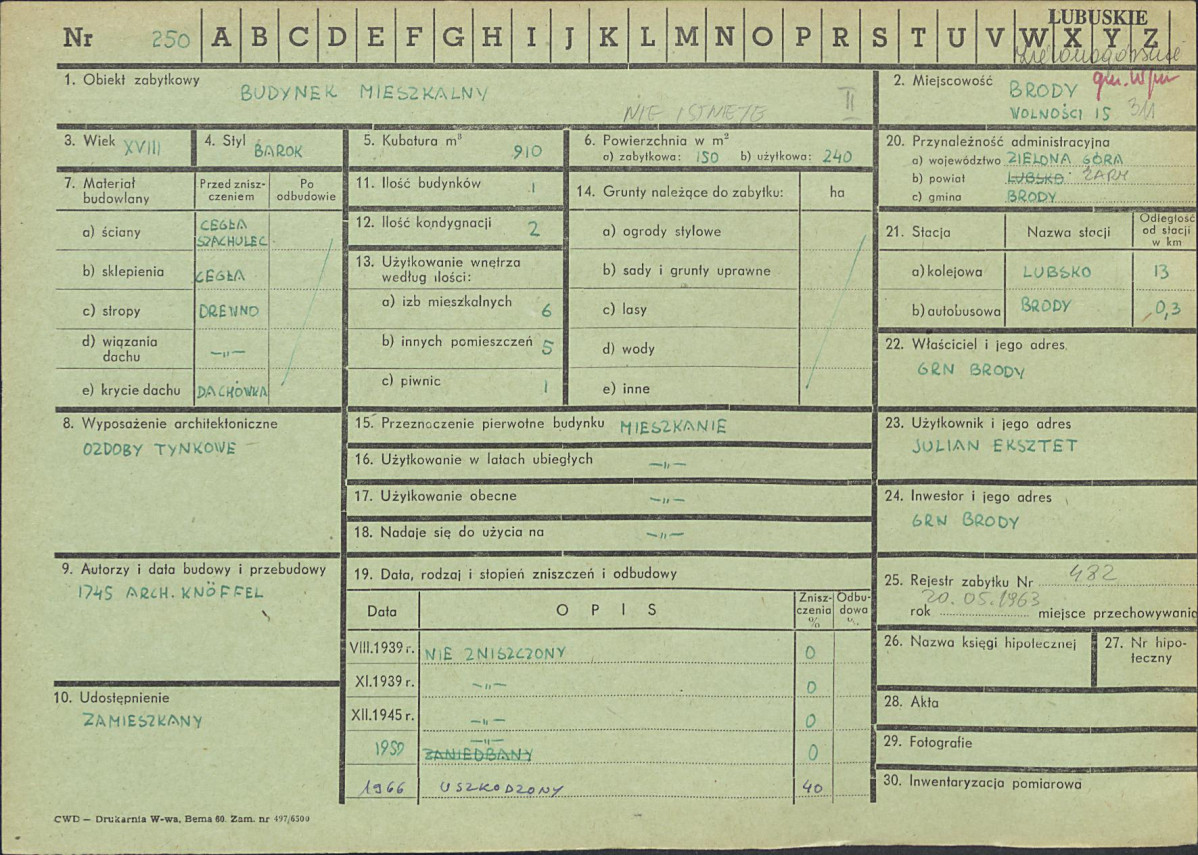 LUBUSKIE
Nr 250 A B C D E F G H I J K L M N O P R S T U V W X Y Z
zielonogórskie
1. Obiekt zabytkowy
BUDYNEK MIESZKALNY
NIE ISTNIEJE II
2. Miejscowość BRODY
WOLNOŚCI 15 311
3. Wiek XVIII
4. Styl BAROK
5. Kubatura m³ 910
6. Powierzchnia w m²
a) zabytkowa: 150 b) użytkowa: 240
20. Przynależność administracyjna
a) województwo ZIELONA GÓRA
b) powiat LUBSKO ŻARY
c) gmina BRODY
7. Materiał budowlany
Przed zniszczeniem
Po odbudowie
a) ściany CEGŁA SZACHULEC
b) sklepienia CEGŁA
c) stropy DREWNO
d) wiązania dachu —„—
e) krycie dachu DACHÓWKA
11. Ilość budynków 1
12. Ilość kondygnacji 2
13. Użytkowanie wnętrza według ilości:
a) izb mieszkalnych 6
b) innych pomieszczeń 5
c) piwnic 1
14. Grunty należące do zabytku: ha
a) ogrody stylowe
b) sady i grunty uprawne
c) lasy
d) wody
e) inne
21. Stacja Nazwa stacji Odległość od stacji w km
a) kolejowa LUBSKO 13
b) autobusowa BRODY 0,3
22. Właściciel i jego adres
GRN BRODY
8. Wyposażenie architektoniczne
OZDOBY TYNKOWE
15. Przeznaczenie pierwotne budynku MIESZKANIE
16. Użytkowanie w latach ubiegłych —„—
17. Użytkowanie obecne —„—
18. Nadaje się do użycia na —„—
23. Użytkownik i jego adres
JULIAN EKSZTET
24. Inwestor i jego adres
GRN BRODY
9. Autorzy i data budowy i przebudowy
1745 ARCH. KNÖFFEL
10. Udostępnienie
ZAMIESZKANY
19. Data, rodzaj i stopień zniszczeń i odbudowy
Data OPIS Zniszczenia % Odbudowa %
VIII.1939 r. NIE ZNISZCZONY 0
XI.1939 r. —„— 0
XII.1945 r. —„— 0
1959 —„— ZANIEDBANY 0
1966 USZKODZONY 40
25. Rejestr zabytku Nr 482
20.05.1963
rok miejsce przechowywania
26. Nazwa księgi hipotecznej
27. Nr hipoteczny
28. Akta
29. Fotografie
30. Inwentaryzacja pomiarowa
CWD — Drukarnia W-wa, Bema 60. Zam. nr 497/6500